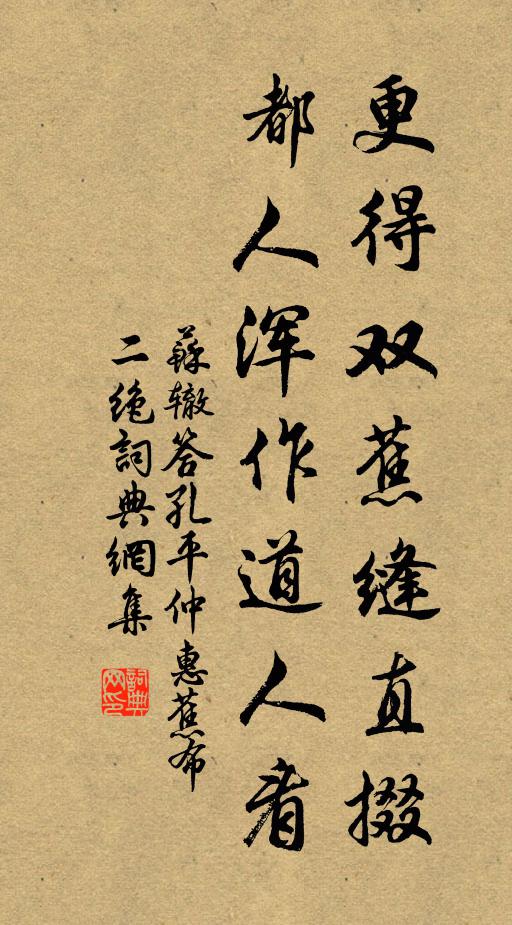 更得双蕉缝直掇
都人浑作道人看
蘇辙答孔平仲惠蕉布
二绝詞典網集
詞典网印